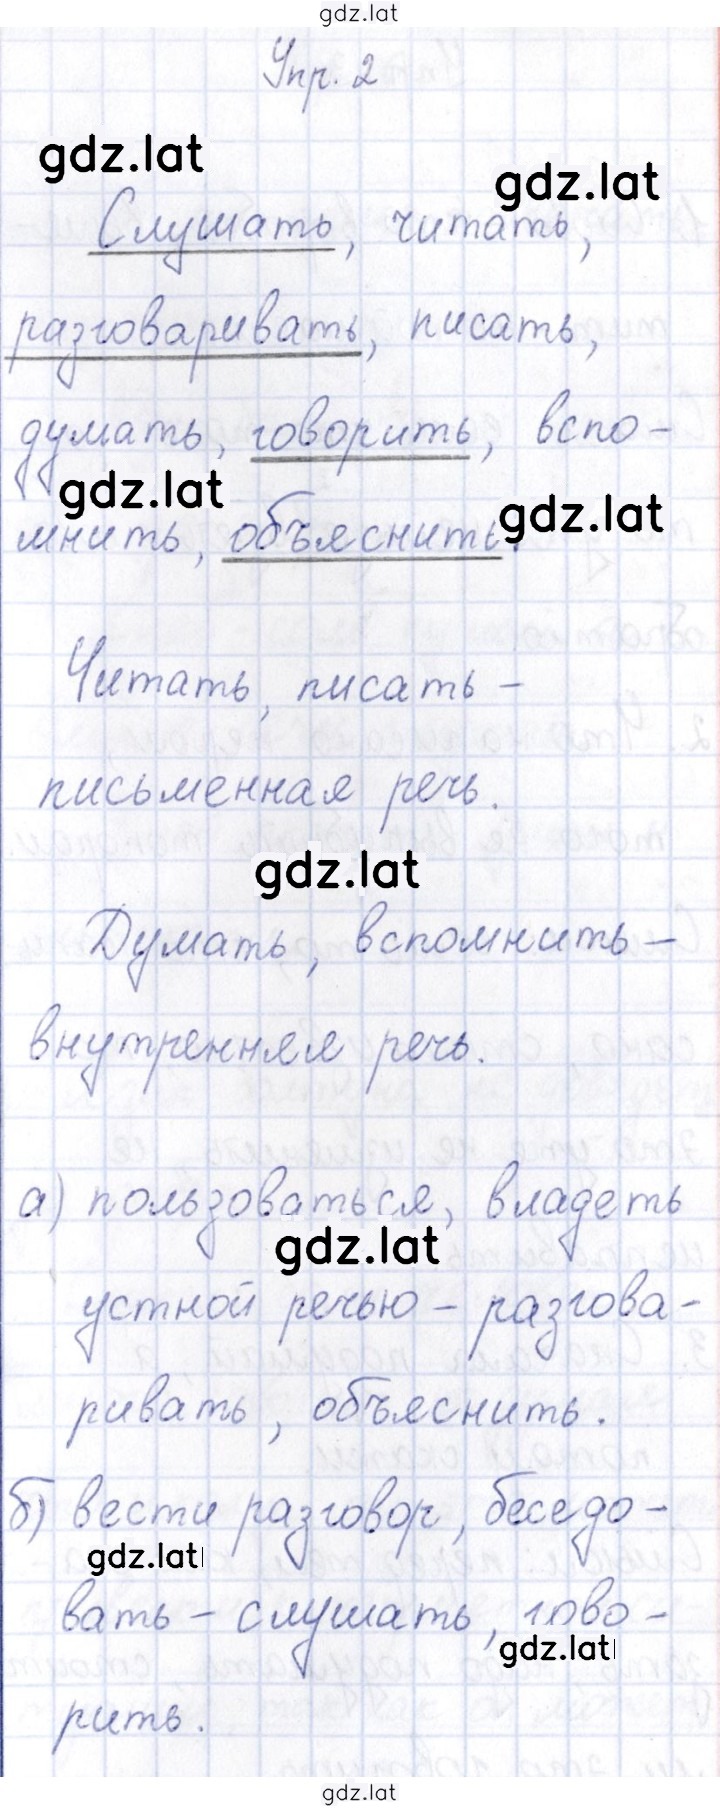 gdz.lat
Упр. 2
gdz.lat
gdz.lat
Слушать, читать,
разговаривать, писать,
думать, говорить, вспо-
gdz.lat
gdz.lat
мнить, объяснить.
Читать, писать -
письменная речь.
gdz.lat
Думать, вспомнить -
внутренняя речь.
а) пользоваться, владеть
gdz.lat
устной речью - разгова-
ривать, объяснить.
б) вести разговор, беседо-
gdz.lat
вать - слушать, гово-
gdz.lat
рить.
gdz.lat